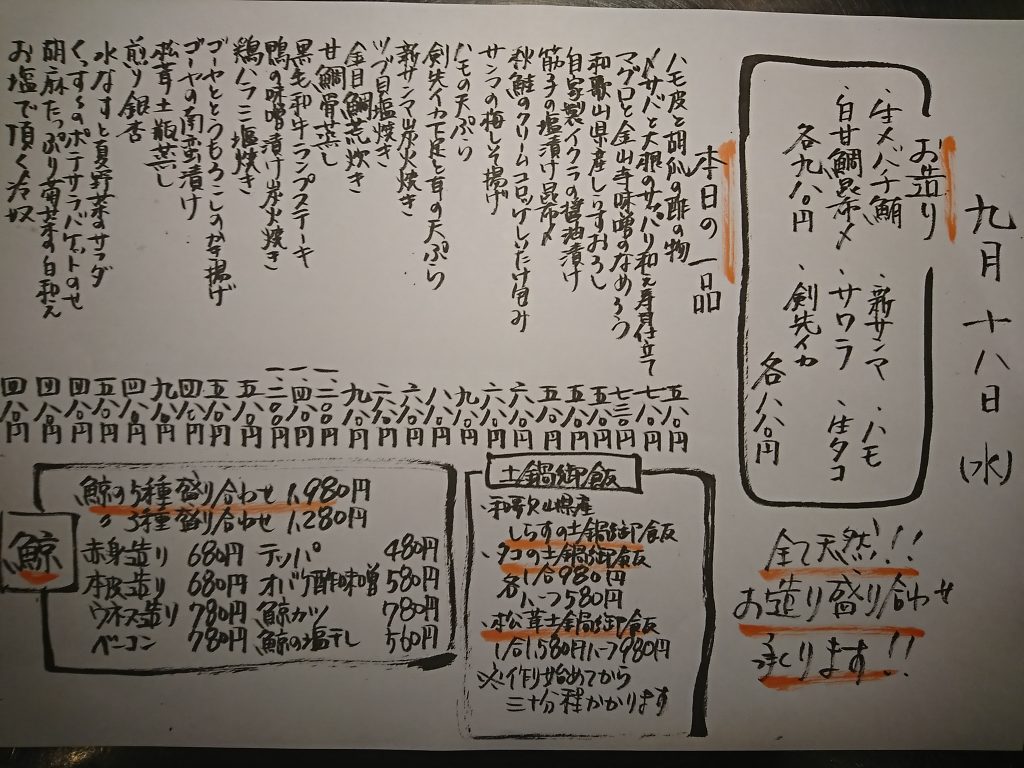 九月十八日(水)
お造り
・生メバチ鮪 ・新サンマ ・ハモ
・白甘鯛昆布〆 ・サワラ ・生タコ
各九八〇円 ・剣先イカ
各八八〇円
全て天然!!
お造り盛り合わせ
承ります!!
本日の一品
ハモ皮と胡瓜の酢の物 五八〇円
〆サバと大根のサッパリ和え寿司仕立て 七八〇円
マグロと金山寺味噌のなめろう 七三〇円
和歌山県産しらすおろし 五八〇円
自家製イクラの醤油漬け 五八〇円
筋子の塩漬け昆布〆 五八〇円
秋鮭のクリームコロッケしいたけ包み 六八〇円
サンマの梅しそ揚げ 六八〇円
ハモの天ぷら 九八〇円
剣先イカ下足と茸の天ぷら 八八〇円
新サンマ炭火焼き 六八〇円
ツブ貝塩焼き 六八〇円
金目鯛荒炊き 九八〇円
甘鯛骨蒸し 一、二〇〇円
黒毛和牛ランプステーキ 一、四八〇円
鴨の味噌漬け炭火焼き 一、二〇〇円
鶏ハラミ塩焼き 五八〇円
ゴーヤととうもろこしのかき揚げ 五八〇円
ゴーヤの南蛮漬け 四八〇円
松茸土瓶蒸し 九八〇円
煎り銀杏 四八〇円
水なすと夏野菜のサラダ 五八〇円
くんせいのポテサラバゲットのせ 四八〇円
胡麻たっぷり菊菜の白和え 四八〇円
お塩で頂く冷奴 四八〇円
土鍋御飯
・和歌山県産
しらすの土鍋御飯
・タコの土鍋御飯
各1合980円
各ハーフ580円
・松茸土鍋御飯
1合1,580円ハーフ980円
※作り始めてから
三十分程かかります
鯨
鯨の5種盛り合わせ 1,980円
〃 3種盛り合わせ 1,280円
赤身造り 680円 テッパ 480円
本皮造り 680円 オバケ酢味噌 580円
ウネス造り 780円 鯨カツ 780円
ベーコン 780円 鯨の塩干し 560円